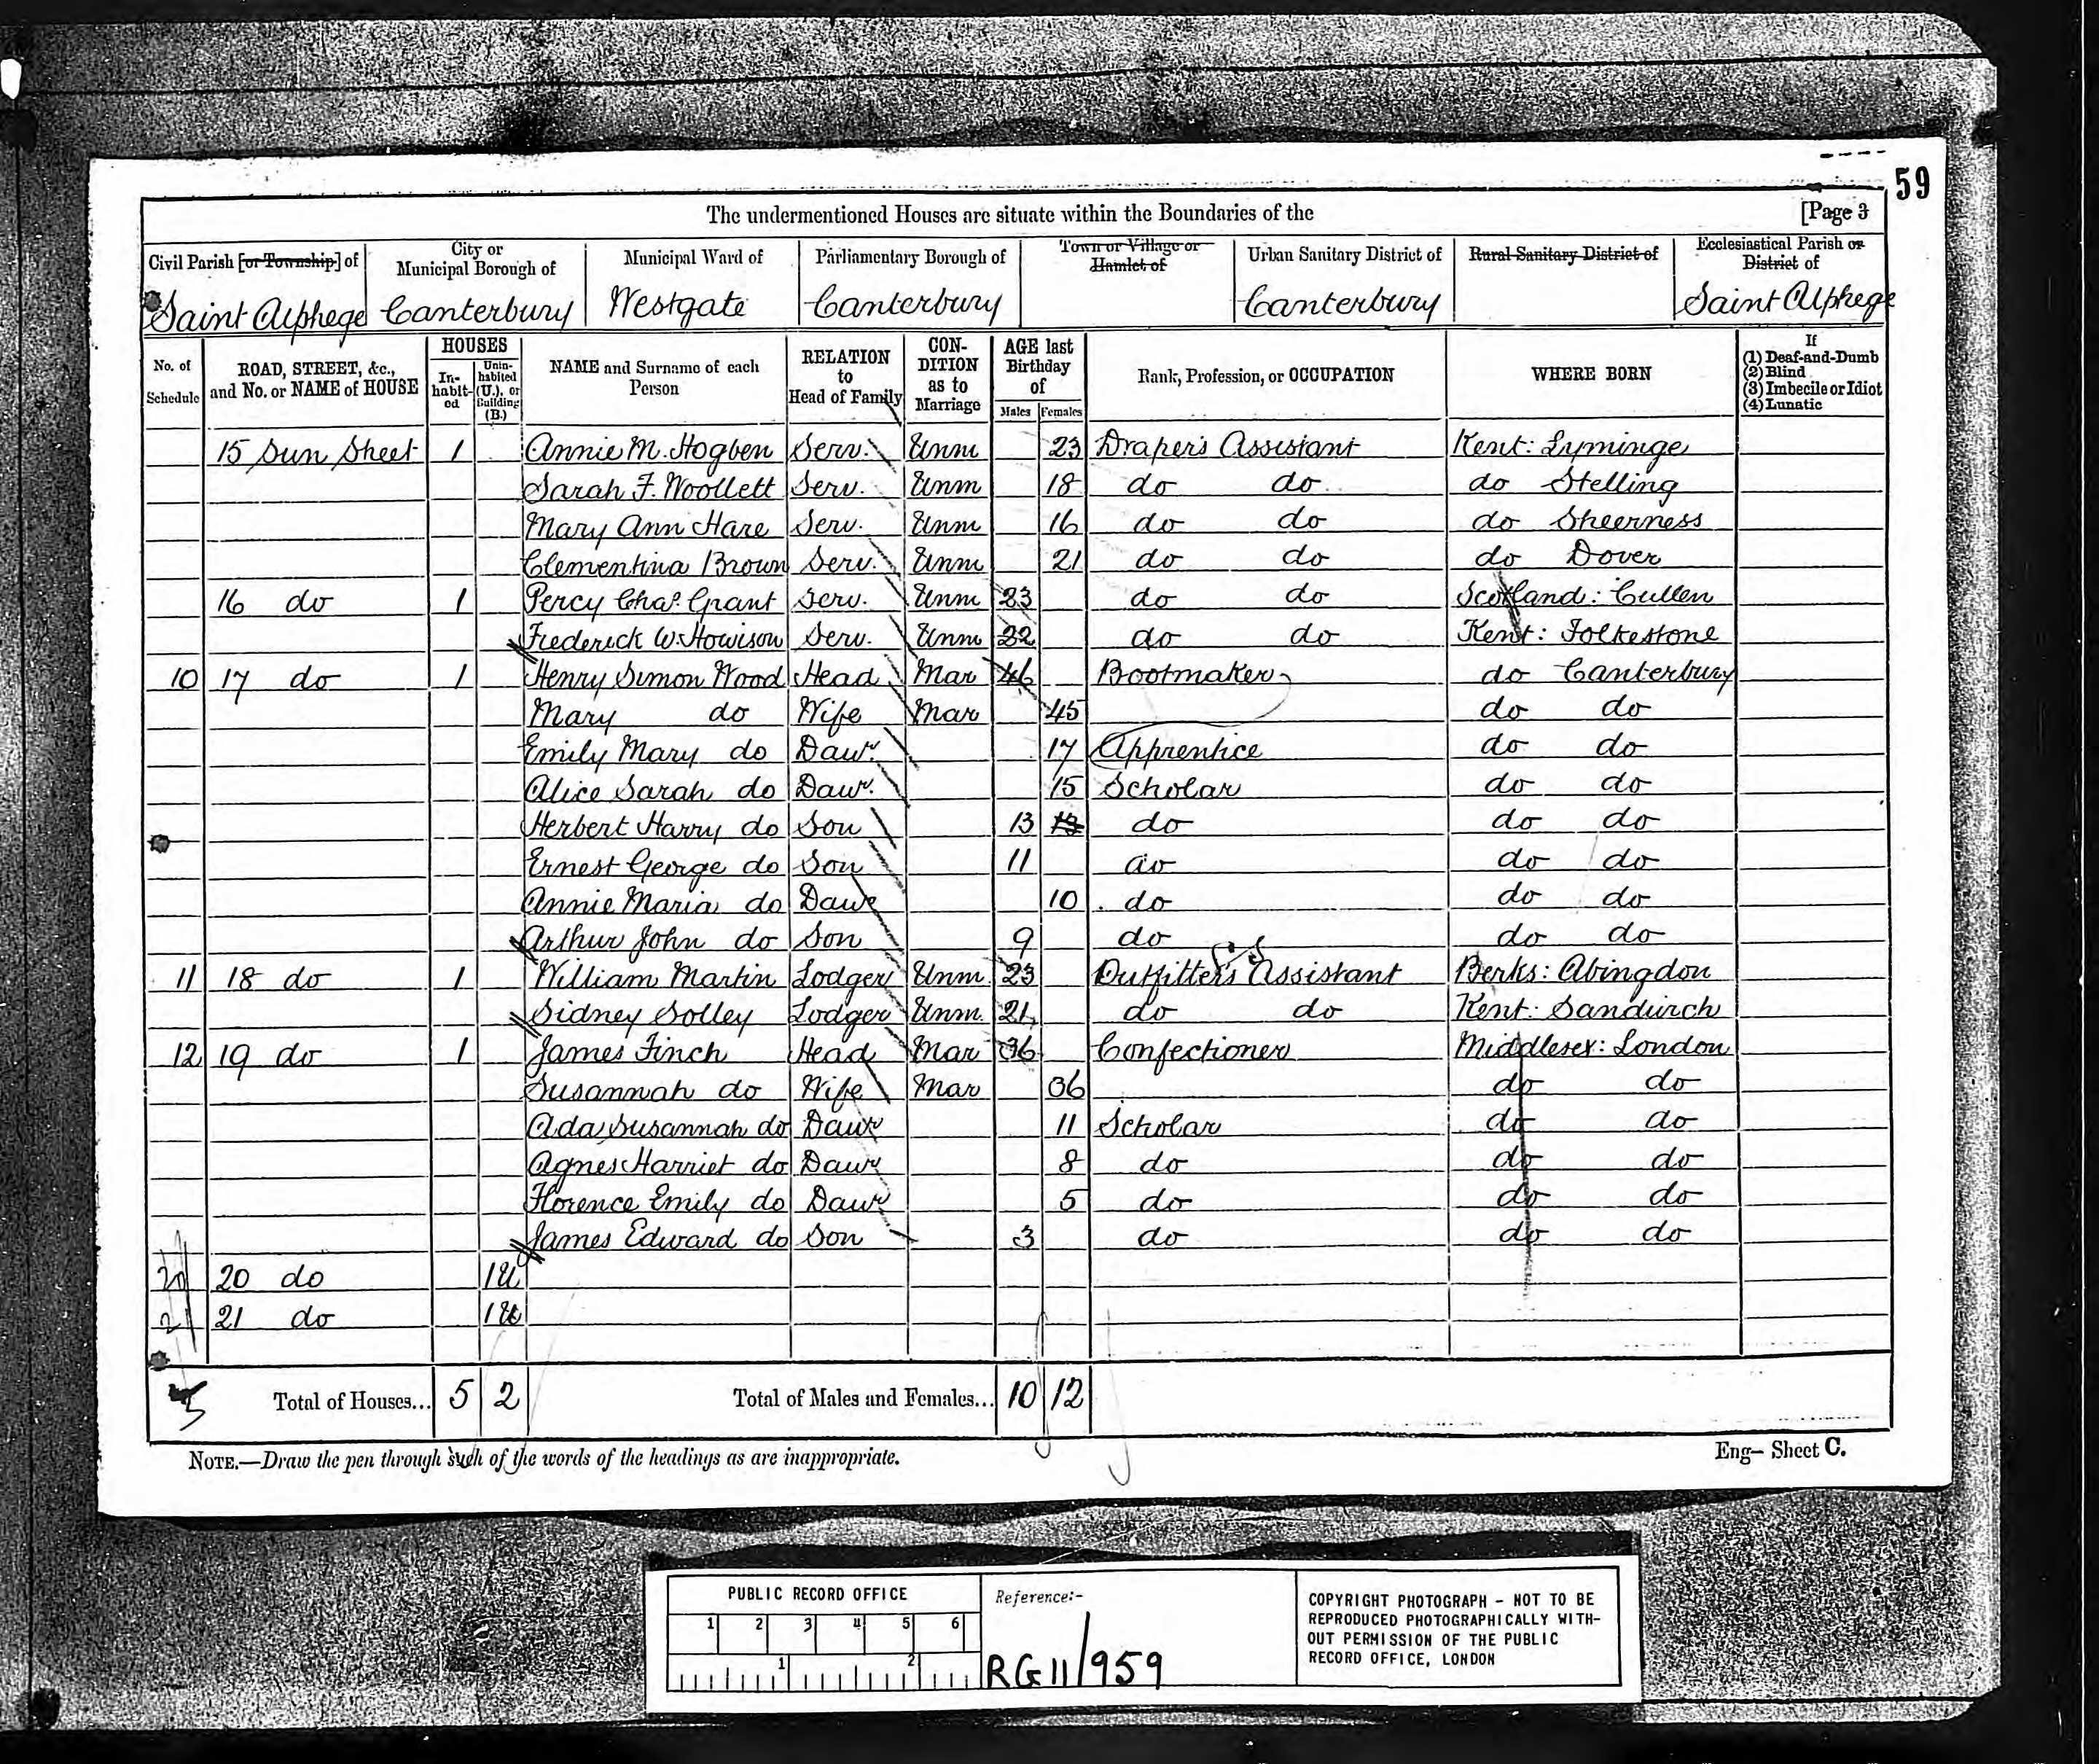 59
The undermentioned Houses are situate within the Boundaries of the [Page 3
Civil Parish [or Township] of City or Municipal Borough of Municipal Ward of Parliamentary Borough of Town or Village or Hamlet of Urban Sanitary District of Rural Sanitary District of Ecclesiastical Parish or District of
Saint Alphege Canterbury Westgate Canterbury Canterbury Saint Alphege
No. of Schedule ROAD, STREET, &c., and No. or NAME of HOUSE HOUSES In-habit-ed Unin-habited (U.), or Building (B.) NAME and Surname of each Person RELATION to Head of Family CON-DITION as to Marriage AGE last Birthday of Males Females Rank, Profession, or OCCUPATION WHERE BORN If (1) Deaf-and-Dumb (2) Blind (3) Imbecile or Idiot (4) Lunatic
15 Sun Street 1 Annie M. Hogben Serv. Unm 23 Draper's Assistant Kent: Lyminge
Sarah F. Woollett Serv. Unm 18 do do do Stelling
Mary Ann Hare Serv. Unm 16 do do do Sheerness
Clementina Brown Serv. Unm 21 do do do Dover
16 do 1 Percy Chas. Grant Serv. Unm 23 do do Scotland: Cullen
Frederick W. Howison Serv. Unm 22 do do Kent: Folkestone
10 17 do 1 Henry Simon Wood Head Mar 46 Bootmaker do Canterbury
Mary do Wife Mar 45 do do
Emily Mary do Daur. 17 Apprentice do do
Alice Sarah do Daur. 15 Scholar do do
Herbert Harry do Son 13 13 do do do
Ernest George do Son 11 do do do
Annie Maria do Daur 10 do do do
Arthur John do Son 9 do do do
11 18 do 1 William Martin Lodger Unm 23 Outfitter's Assistant Berks: Abingdon
Sidney Solley Lodger Unm. 21 do do Kent: Sandwich
12 19 do 1 James Finch Head Mar 36 Confectioner Middlesex: London
Susannah do Wife Mar 36 do do
Ada Susannah do Daur 11 Scholar do do
Agnes Harriet do Daur 8 do do do
Florence Emily do Daur 5 do do do
James Edward do Son 3 do do do
20 20 do 1U
21 21 do 1U
Total of Houses... 5 2 Total of Males and Females... 10 12
NOTE.—Draw the pen through such of the words of the headings as are inappropriate. Eng— Sheet C.
PUBLIC RECORD OFFICE
1 2 3 4 5 6
1 2
Reference:-
RG 11/959
COPYRIGHT PHOTOGRAPH - NOT TO BE
REPRODUCED PHOTOGRAPHICALLY WITH-
OUT PERMISSION OF THE PUBLIC
RECORD OFFICE, LONDON